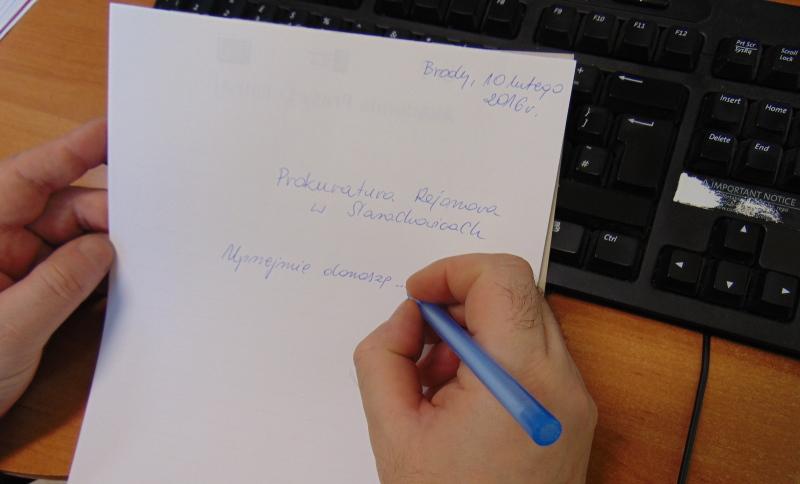 Brody, 10 lutego
2016 r.
Prokuratura Rejonowa
w Starachowicach
Uprzejmie donoszę ...
F8
F9
F10
F11
F12
Prt Scr
SysRq
Scroll
Lock
Insert
Home
Delete
End
Ctrl
IMPORTANT NOTICE